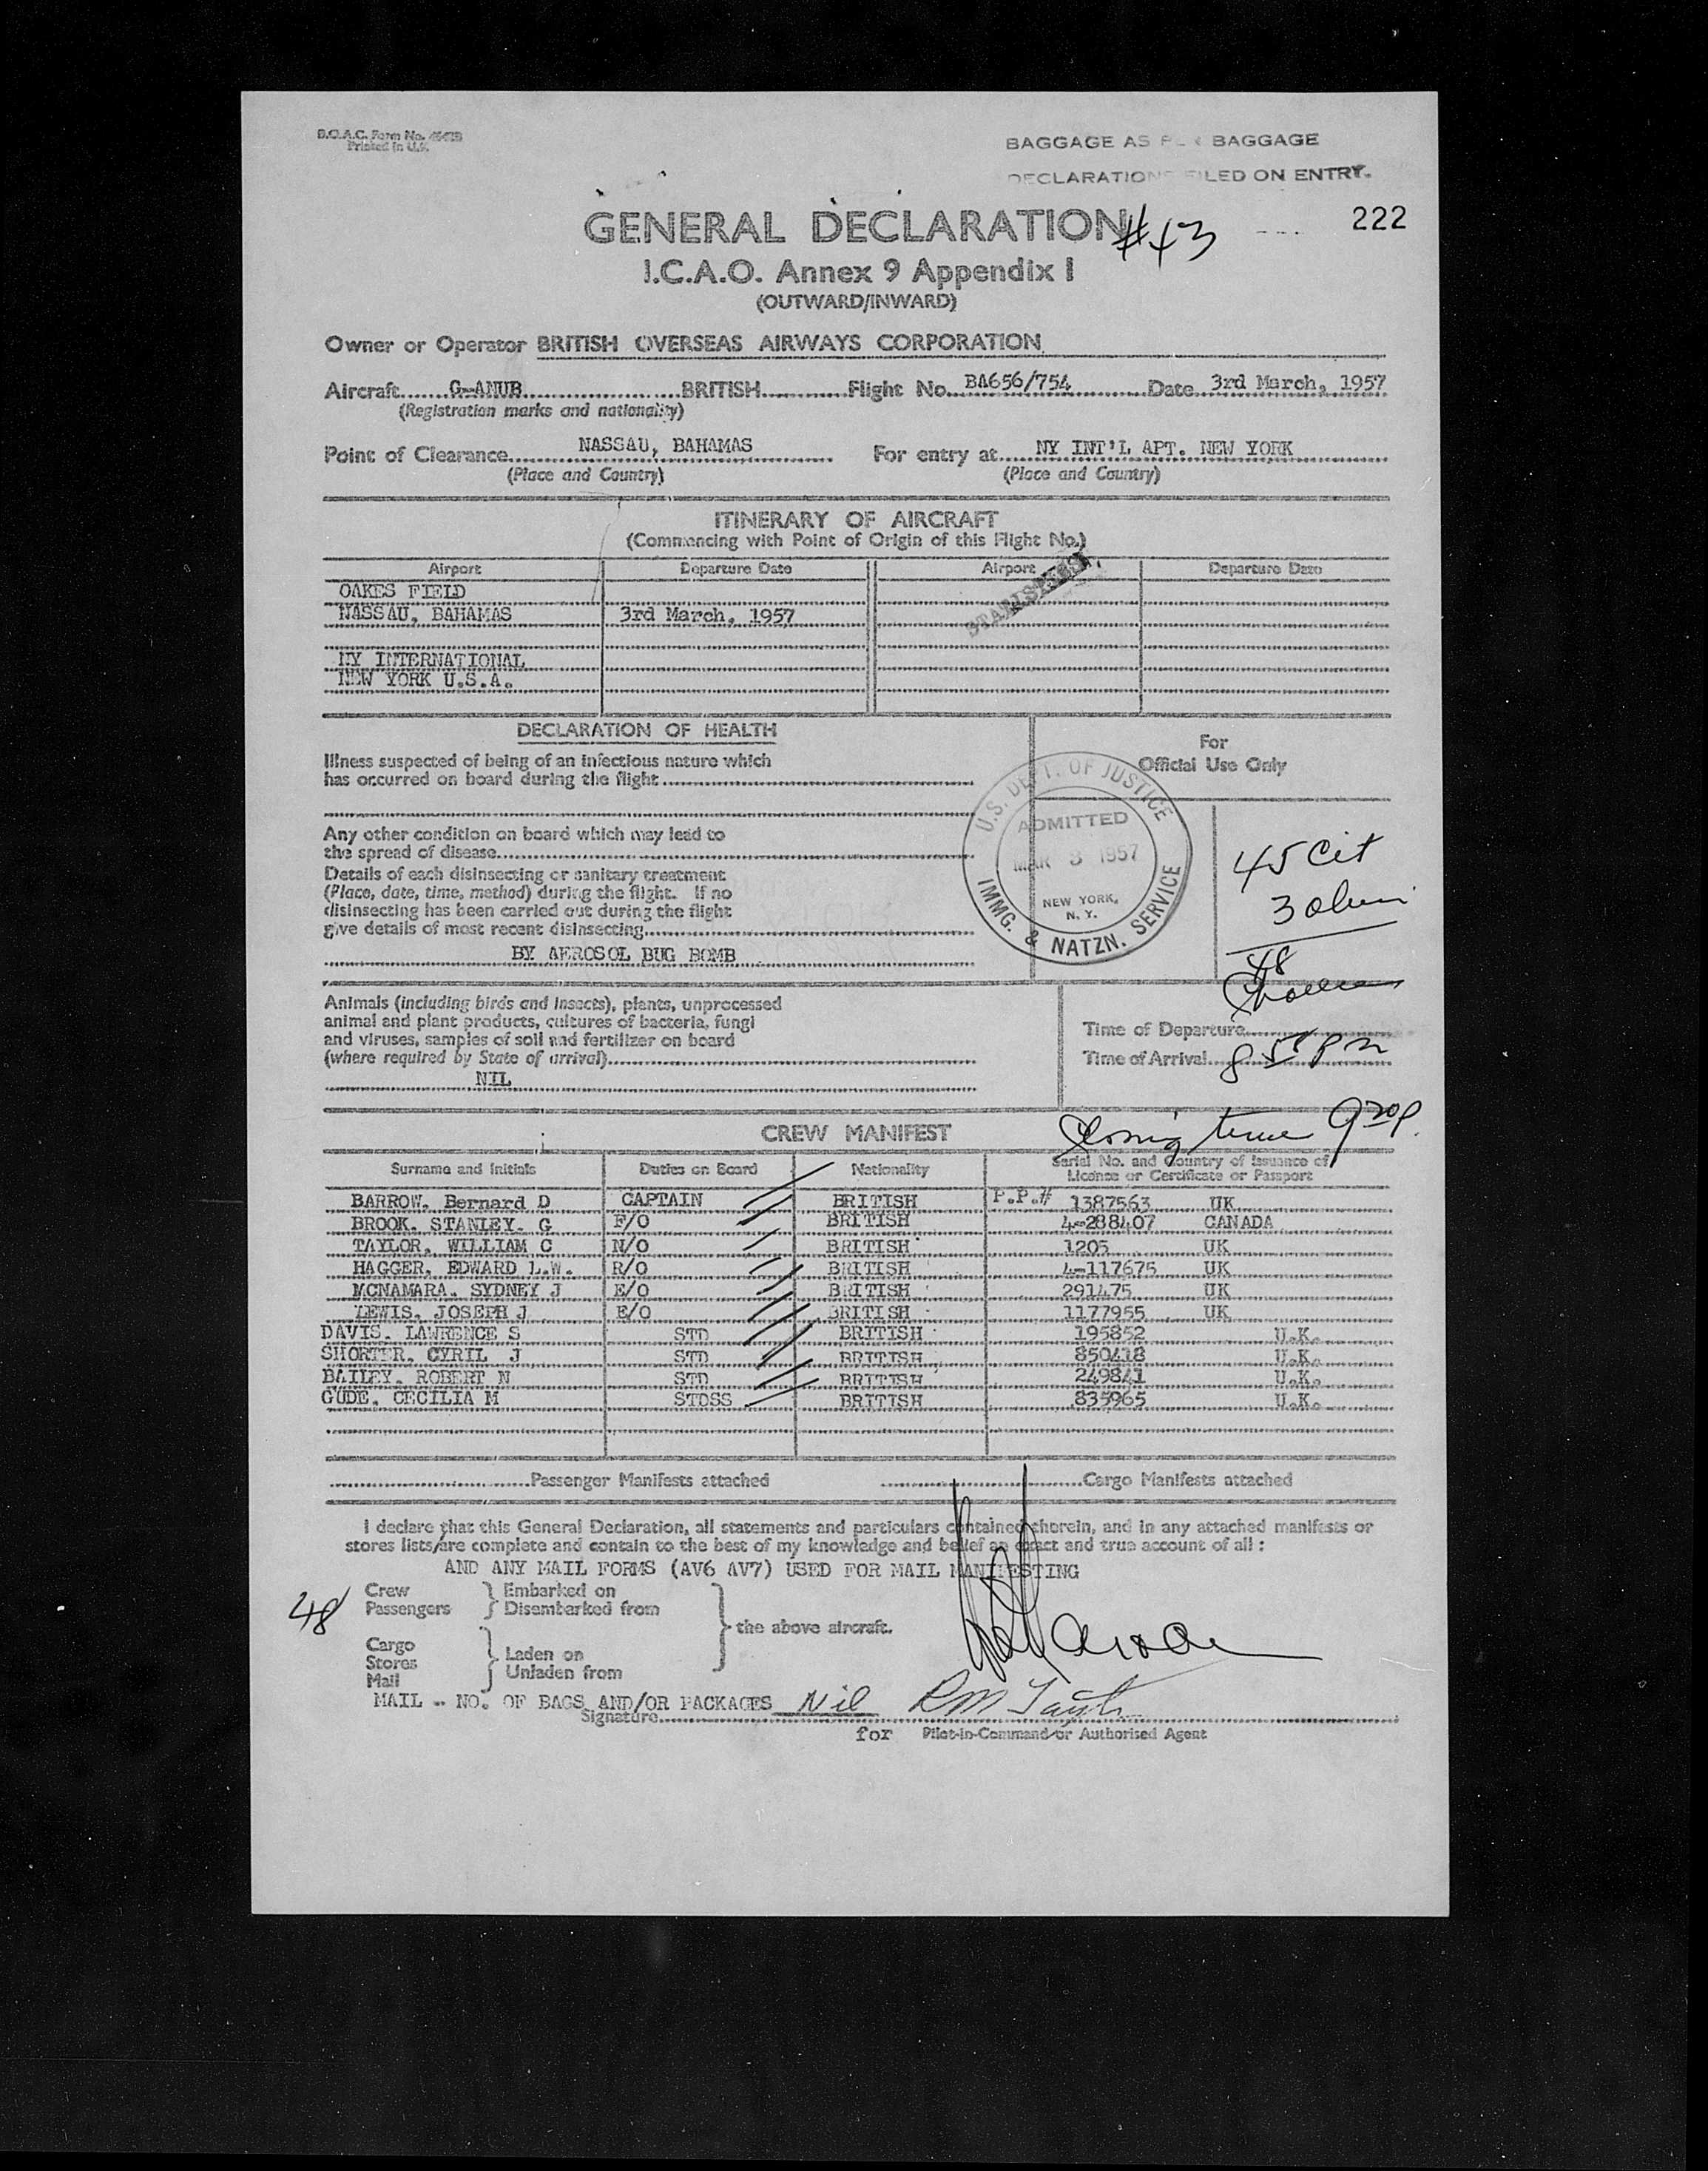 B.O.A.C. Form No.
Printed in U.K.
BAGGAGE AS PER BAGGAGE
DECLARATIONS FILED ON ENTRY.
GENERAL DECLARATION #43
222
I.C.A.O. Annex 9 Appendix I
(OUTWARD/INWARD)
Owner or Operator BRITISH OVERSEAS AIRWAYS CORPORATION
Aircraft G-ANUB BRITISH Flight No. BA656/754 Date 3rd March, 1957
(Registration marks and nationality)
Point of Clearance NASSAU, BAHAMAS For entry at NY INT'L APT. NEW YORK
(Place and Country) (Place and Country)
ITINERARY OF AIRCRAFT
(Commencing with Point of Origin of this Flight No.)
Airport Departure Date Airport Departure Date
OAKES FIELD
NASSAU, BAHAMAS 3rd March, 1957
NY INTERNATIONAL
NEW YORK U.S.A.
DECLARATION OF HEALTH
For
Official Use Only
Illness suspected of being of an infectious nature which
has occurred on board during the flight
Any other condition on board which may lead to
the spread of disease
Details of each disinsecting or sanitary treatment
(Place, date, time, method) during the flight. If no
disinsecting has been carried out during the flight
give details of most recent disinsecting
BY AEROSOL BUG BOMB
U.S. DEPT. OF JUSTICE
ADMITTED
MAR 3 1957
NEW YORK,
N. Y.
IMMG. & NATZN. SERVICE
45 Cit
3
48
Animals (including birds and insects), plants, unprocessed
animal and plant products, cultures of bacteria, fungi
and viruses, samples of soil and fertilizer on board
(where required by State of arrival)
NIL
Time of Departure
Time of Arrival 8 55 PM
Closing time 9 20 P.
CREW MANIFEST
Surname and Initials Duties on Board Nationality Serial No. and Country of Issuance of
License or Certificate or Passport
BARROW, Bernard D CAPTAIN BRITISH P.P.# 1387563 UK
BROOK, STANLEY. G F/O BRITISH 4-288407 CANADA
TAYLOR, WILLIAM C N/O BRITISH 1205 UK
HAGGER, EDWARD L.W. R/O BRITISH 4-117675 UK
MCNAMARA, SYDNEY J E/O BRITISH 291475 UK
LEWIS, JOSEPH J E/O BRITISH 1177955 UK
DAVIS, LAWRENCE S STD BRITISH 195852 U.K.
SHORTER, CYRIL J STD BRITISH 850418 U.K.
BAILEY, ROBERT N STD BRITISH 249841 U.K.
GUDE, CECILIA M STDSS BRITISH 835965 U.K.
Passenger Manifests attached Cargo Manifests attached
I declare that this General Declaration, all statements and particulars contained therein, and in any attached manifests or
stores lists are complete and contain to the best of my knowledge and belief an exact and true account of all :
AND ANY MAIL FORMS (AV6 AV7) USED FOR MAIL MANIFESTING
48
Crew
Passengers
Embarked on
Disembarked from
the above aircraft.
Cargo
Stores
Mail
Laden on
Unladen from
MAIL - NO. OF BAGS AND/OR PACKAGES Nil
Signature
for Pilot-in-Command or Authorised Agent